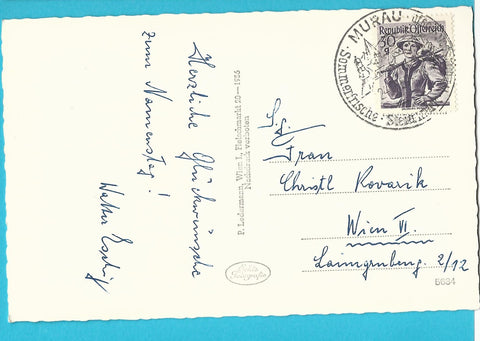 Herzliche Glückwünsche
zum Namenstag!
Walter
P. Ledermann, Wien I., Fleischmarkt 20 — 1955
Nachdruck verboten
Echte
Fotografie
MURAU
Sommerfrische
Republik Österreich
30 g
Frau
Christl Kovarik
Wien VI.
Laimgrubeng. 2/12
8684